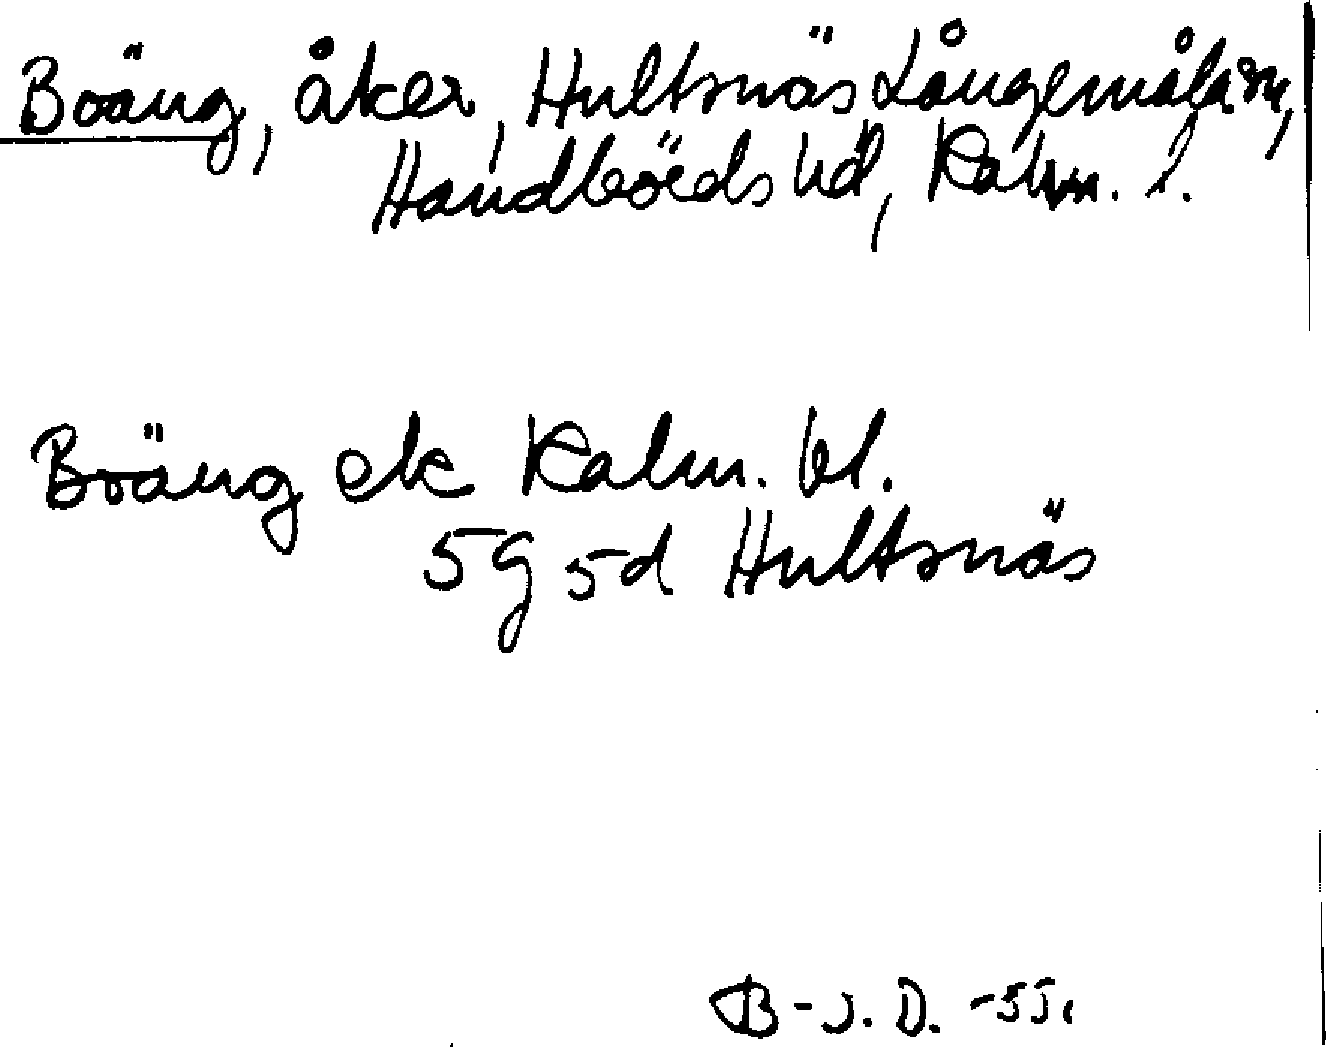 Boäng, åker, Hultsnäs Långemåla sn,
Handbörds hd, Kalm. l.
Boäng ek Kalm. bl.
5g 5d Hultsnäs
B-J. D. -55.